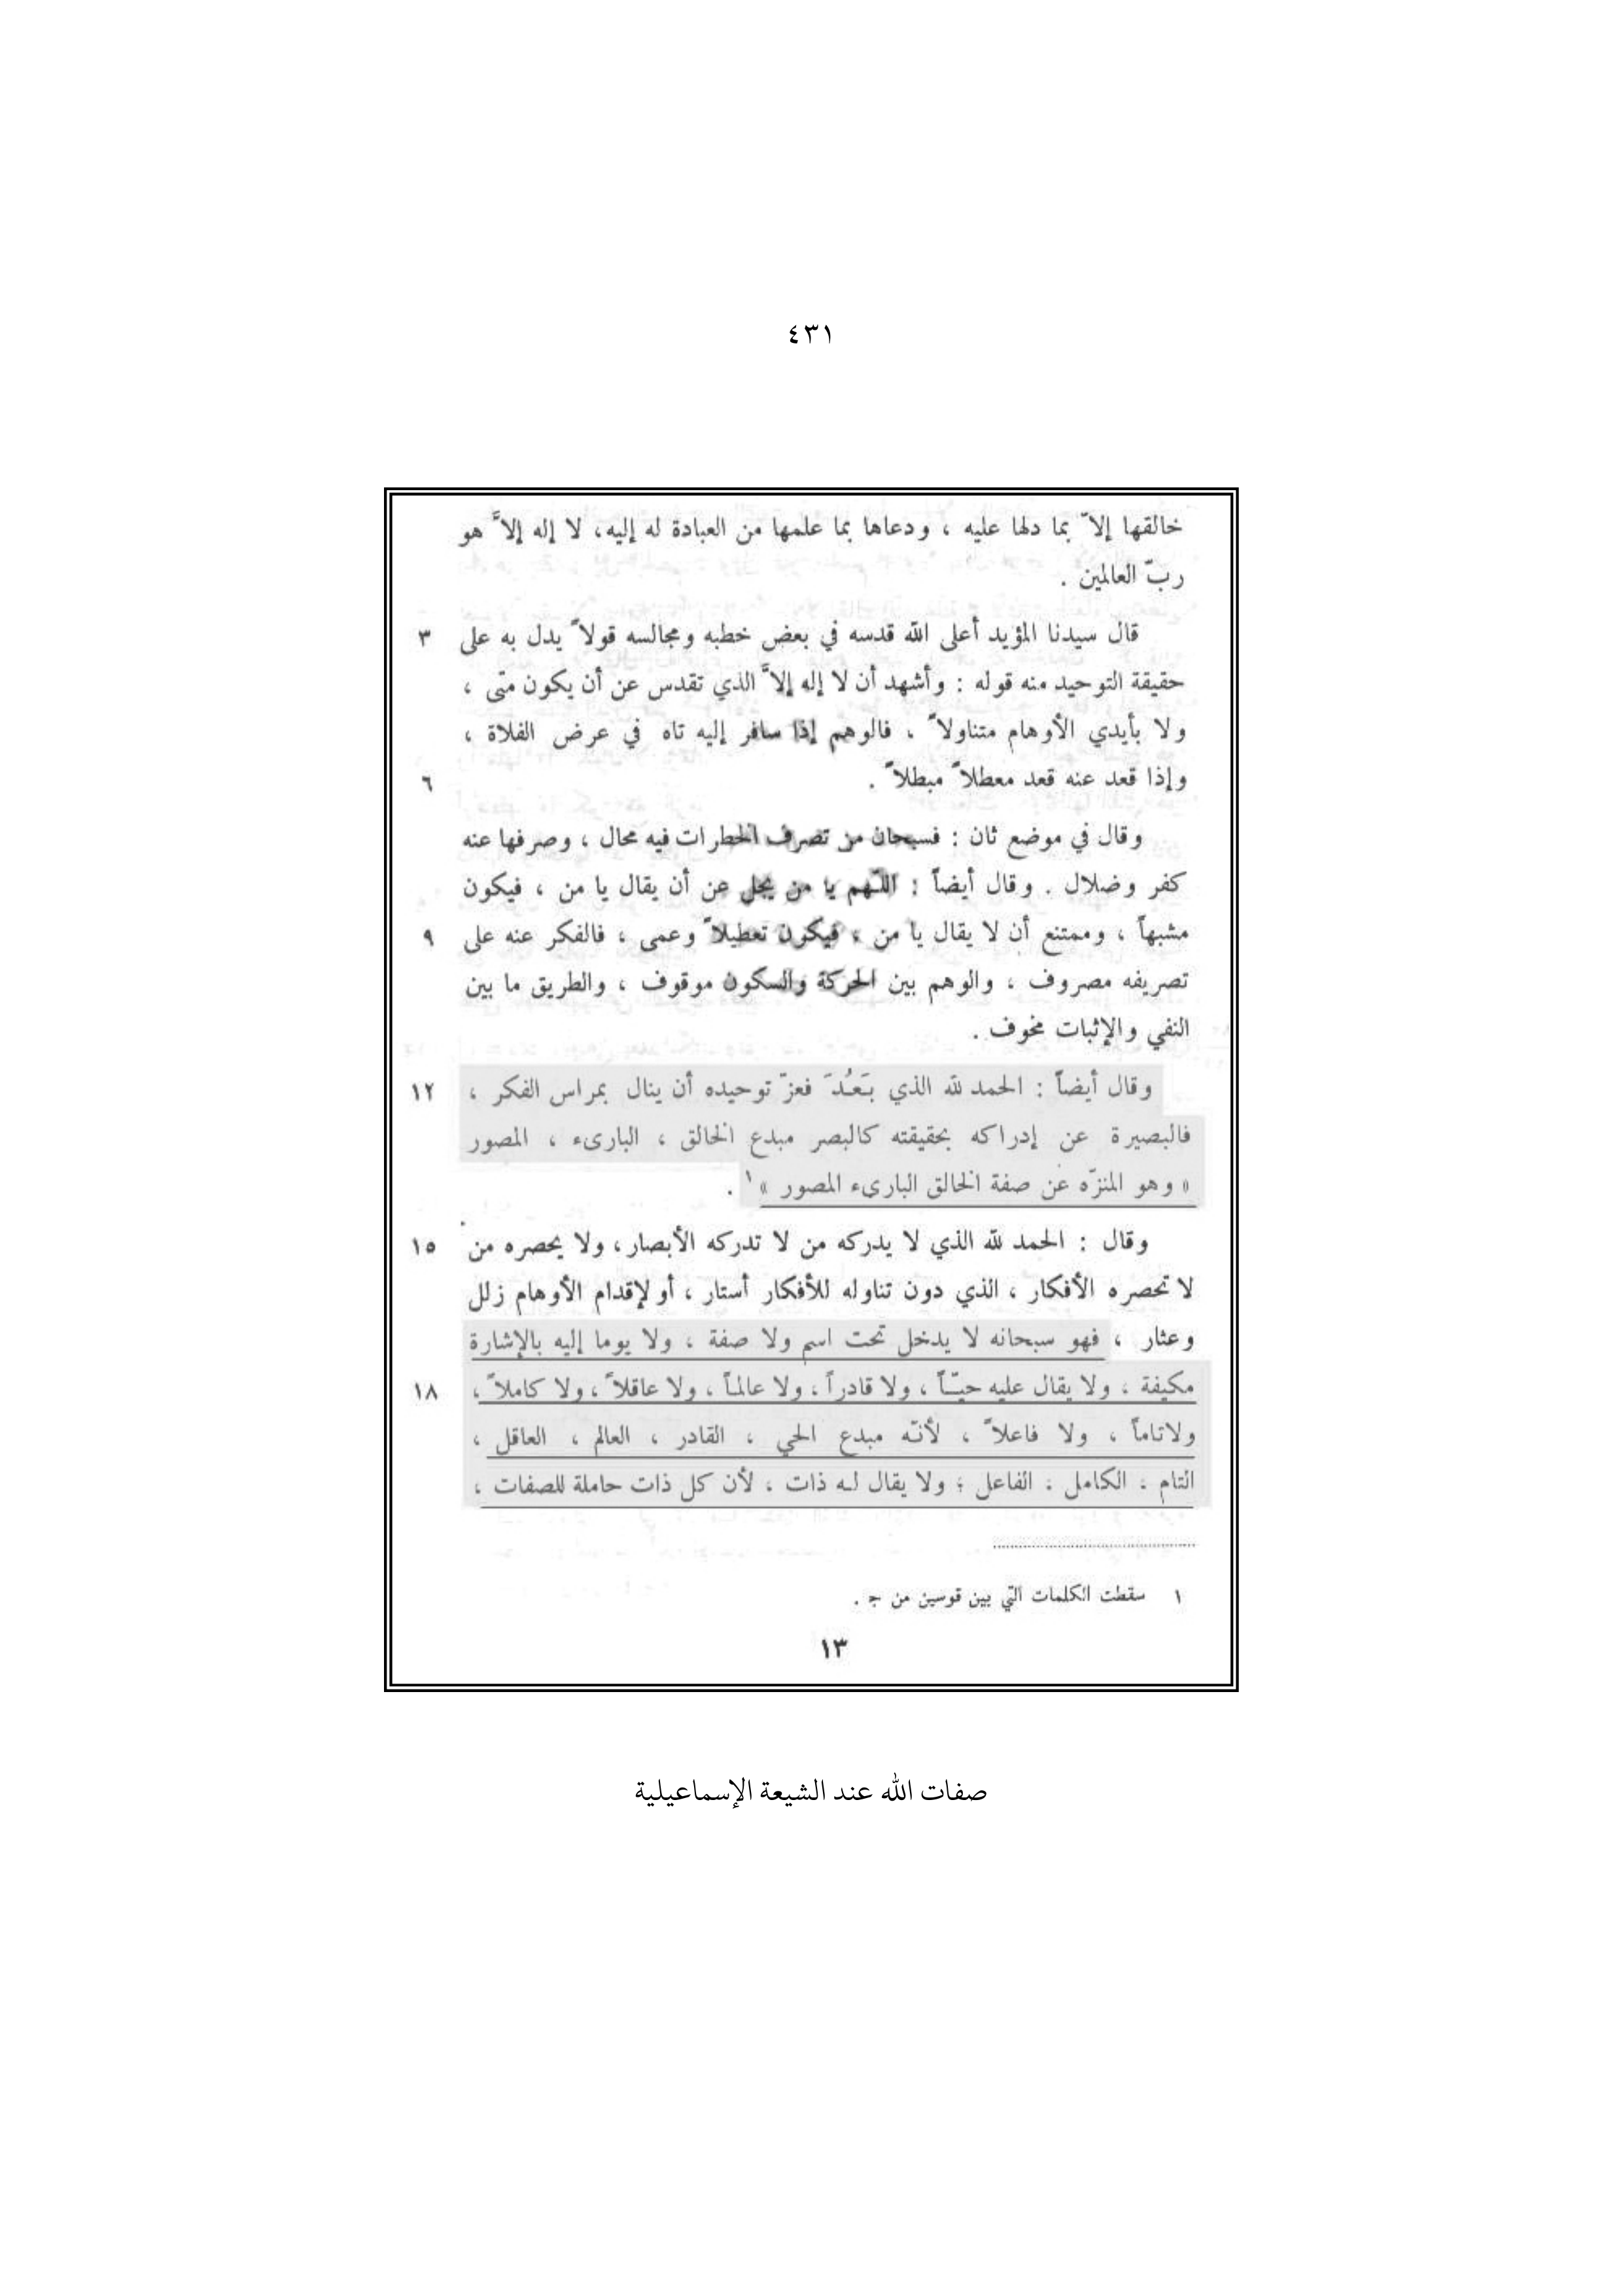 ٤٣١
خالقها إلاّ بما دلها عليه ، ودعاها بما علمها من العبادة له إليه، لا إله إلاَّ هو
ربّ العالمين .
قال سيدنا المؤيد أعلى الله قدسه في بعض خطبه ومجالسه قولاً يدل به على ٣
حقيقة التوحيد منه قوله : وأشهد أن لا إله إلاَّ الذي تقدس عن أن يكون متى ،
ولا بأيدي الأوهام متناولاً ، فالوهم إذا سافر إليه تاه في عرض الفلاة ،
وإذا قعد عنه قعد معطلاً مبطلاً . ٦
وقال في موضع ثان : فسبحان من تصرف الخطرات فيه محال ، وصرفها عنه
كفر وضلال . وقال أيضاً : اللّهم يا من يجل عن أن يقال يا من ، فيكون
مشبهاً ، وممتنع أن لا يقال يا من ، فيكون تعطيلاً وعمى ، فالفكر عنه على ٩
تصريفه مصروف ، والوهم بين الحركة والسكون موقوف ، والطريق ما بين
النفي والإثبات مخوف .
وقال أيضاً : الحمد لله الذي بَعُدَ فعزّ توحيده أن ينال بمراس الفكر ، ١٢
فالبصيرة عن إدراكه بحقيقته كالبصر مبدع الخالق ، البارىء ، المصور
« وهو المنزّه عن صفة الخالق البارىء المصور »١ .
وقال : الحمد لله الذي لا يدركه من لا تدركه الأبصار، ولا يحصره من ١٥
لا تحصره الأفكار ، الذي دون تناوله للأفكار أستار ، أو لإقدام الأوهام زلل
وعثار ، فهو سبحانه لا يدخل تحت اسم ولا صفة ، ولا يوما إليه بالإشارة
مكيفة ، ولا يقال عليه حيّاً ، ولا قادراً ، ولا عالماً ، ولا عاقلاً ، ولا كاملاً ، ١٨
ولا تاماً ، ولا فاعلاً ، لأنّه مبدع الحي ، القادر ، العالم ، العاقل ،
التام ، الكامل ، الفاعل ؛ ولا يقال له ذات ، لأن كل ذات حاملة للصفات ،
١ سقطت الكلمات التي بين قوسين من ج .
١٣
صفات الله عند الشيعة الإسماعيلية